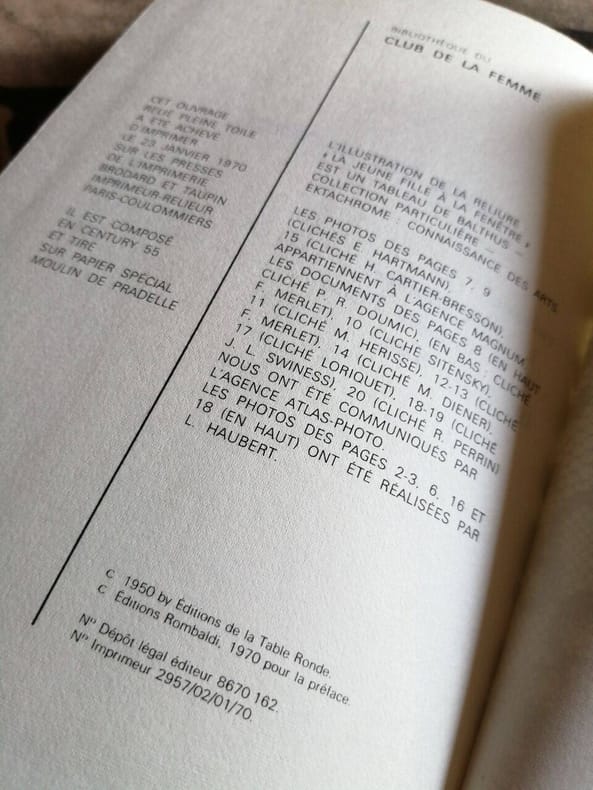 BIBLIOTHÈQUE DU
CLUB DE LA FEMME
CET OUVRAGE
RELIÉ PLEINE TOILE
A ÉTÉ ACHEVÉ
D'IMPRIMER
LE 23 JANVIER 1970
SUR LES PRESSES
DE L'IMPRIMERIE
BRODARD ET TAUPIN
IMPRIMEUR-RELIEUR
PARIS-COULOMMIERS
IL EST COMPOSÉ
EN CENTURY 55
ET TIRÉ
SUR PAPIER SPÉCIAL
MOULIN DE PRADELLE
L'ILLUSTRATION DE LA RELIURE
« LA JEUNE FILLE À LA FENÊTRE »
EST UN TABLEAU DE BALTHUS —
COLLECTION PARTICULIÈRE —
EKTACHROME : CONNAISSANCE DES ARTS
LES PHOTOS DES PAGES 7, 9
(CLICHÉS E. HARTMANN),
15 (CLICHÉ H. CARTIER-BRESSON),
APPARTIENNENT À L'AGENCE MAGNUM.
LES DOCUMENTS DES PAGES 8 (EN HAUT
CLICHÉ P. R. DOUMIC), (EN BAS : CLICHÉ
F. MERLET), 10 (CLICHÉ SITENSKY),
11 (CLICHÉ M. HERISSE), 12-13 (CLICHÉ
F. MERLET), 14 (CLICHÉ M. DIENER),
17 (CLICHÉ LORIQUET), 18-19 (CLICHÉ
J. L. SWINESS), 20 (CLICHÉ R. PERRIN)
NOUS ONT ÉTÉ COMMUNIQUÉS PAR
L'AGENCE ATLAS-PHOTO.
LES PHOTOS DES PAGES 2-3, 6, 16 ET
18 (EN HAUT) ONT ÉTÉ RÉALISÉES PAR
L. HAUBERT.
C 1950 by Éditions de la Table Ronde.
C Éditions Rombaldi, 1970 pour la préface.
Nº Dépôt légal éditeur 8670 162.
Nº Imprimeur 2957/02/01/70.